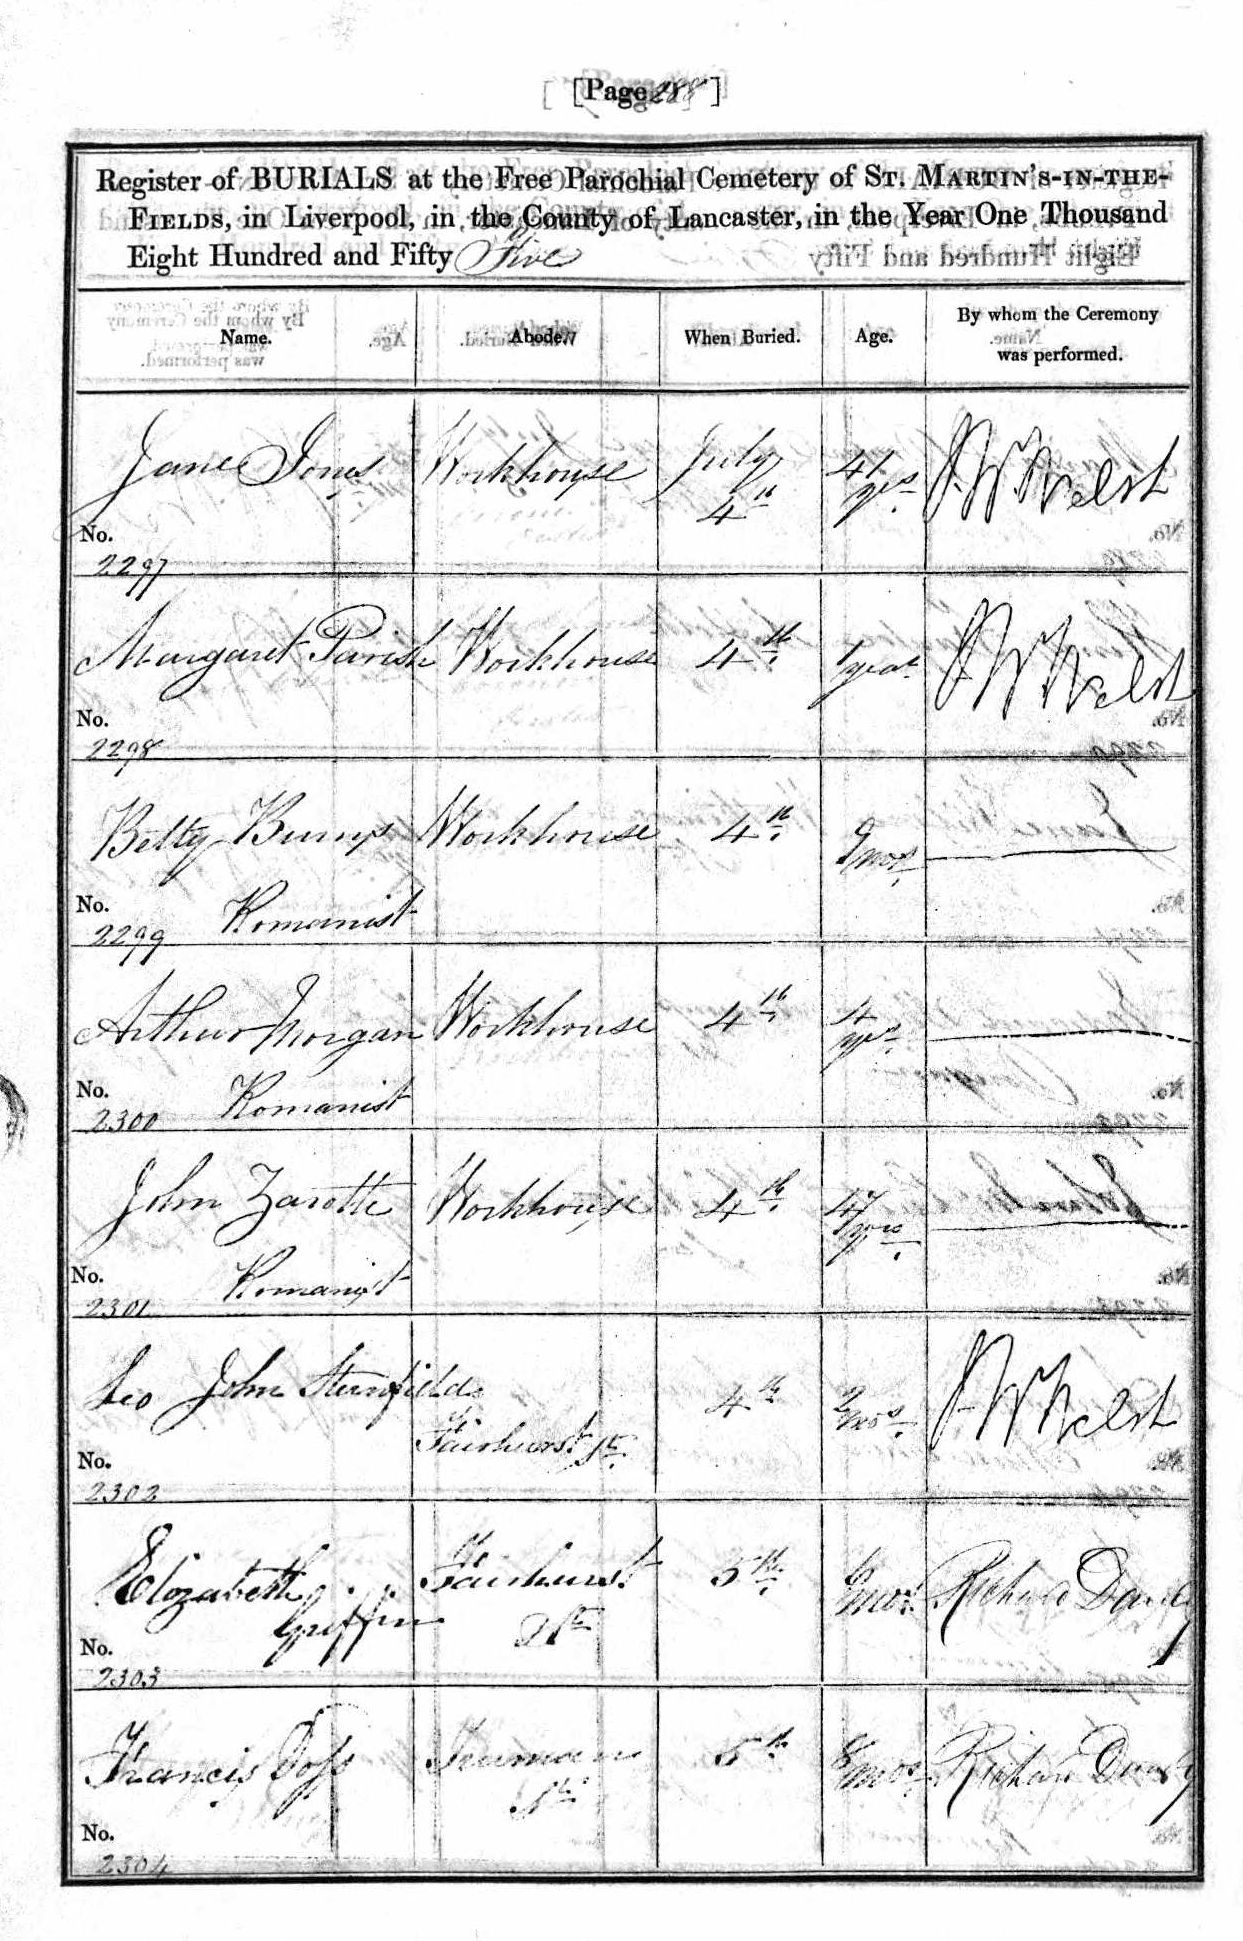 [Page 288]
Register of BURIALS at the Free Parochial Cemetery of ST. MARTIN'S-IN-THE-
FIELDS, in Liverpool, in the County of Lancaster, in the Year One Thousand
Eight Hundred and Fifty Five
Name. Abode. When Buried. Age. By whom the Ceremony
was performed.
Jane Jones Workhouse July 41
4th yrs.
No.
2297
Margaret Parish Workhouse 4th. 1 year
No.
2298
Betty Bump Workhouse 4th. 9
mos.
No. Romanist
2299
Arthur Morgan Workhouse 4th 4
yrs.
No. Romanist
2300
John Zarotte Workhouse 4th. 47
yrs.
No. Romanist
2301
Leo John Stansfield 4th 2
mos.
Fairhurst St.
No.
2302
Elizabeth Fairhurst 5th. 6 Richard
Griffin St. mos.
No.
2303
Francis Doss Truman 5th 8 Richard
St. mos.
No.
2304